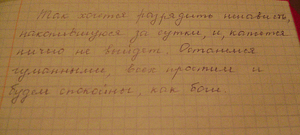 Так хочется разрядить ненависть,
накопившуюся за сутки, и, кажется
ничего не выйдет. Останемся
гуманными, всех простим и
будем спокойны, как боги.